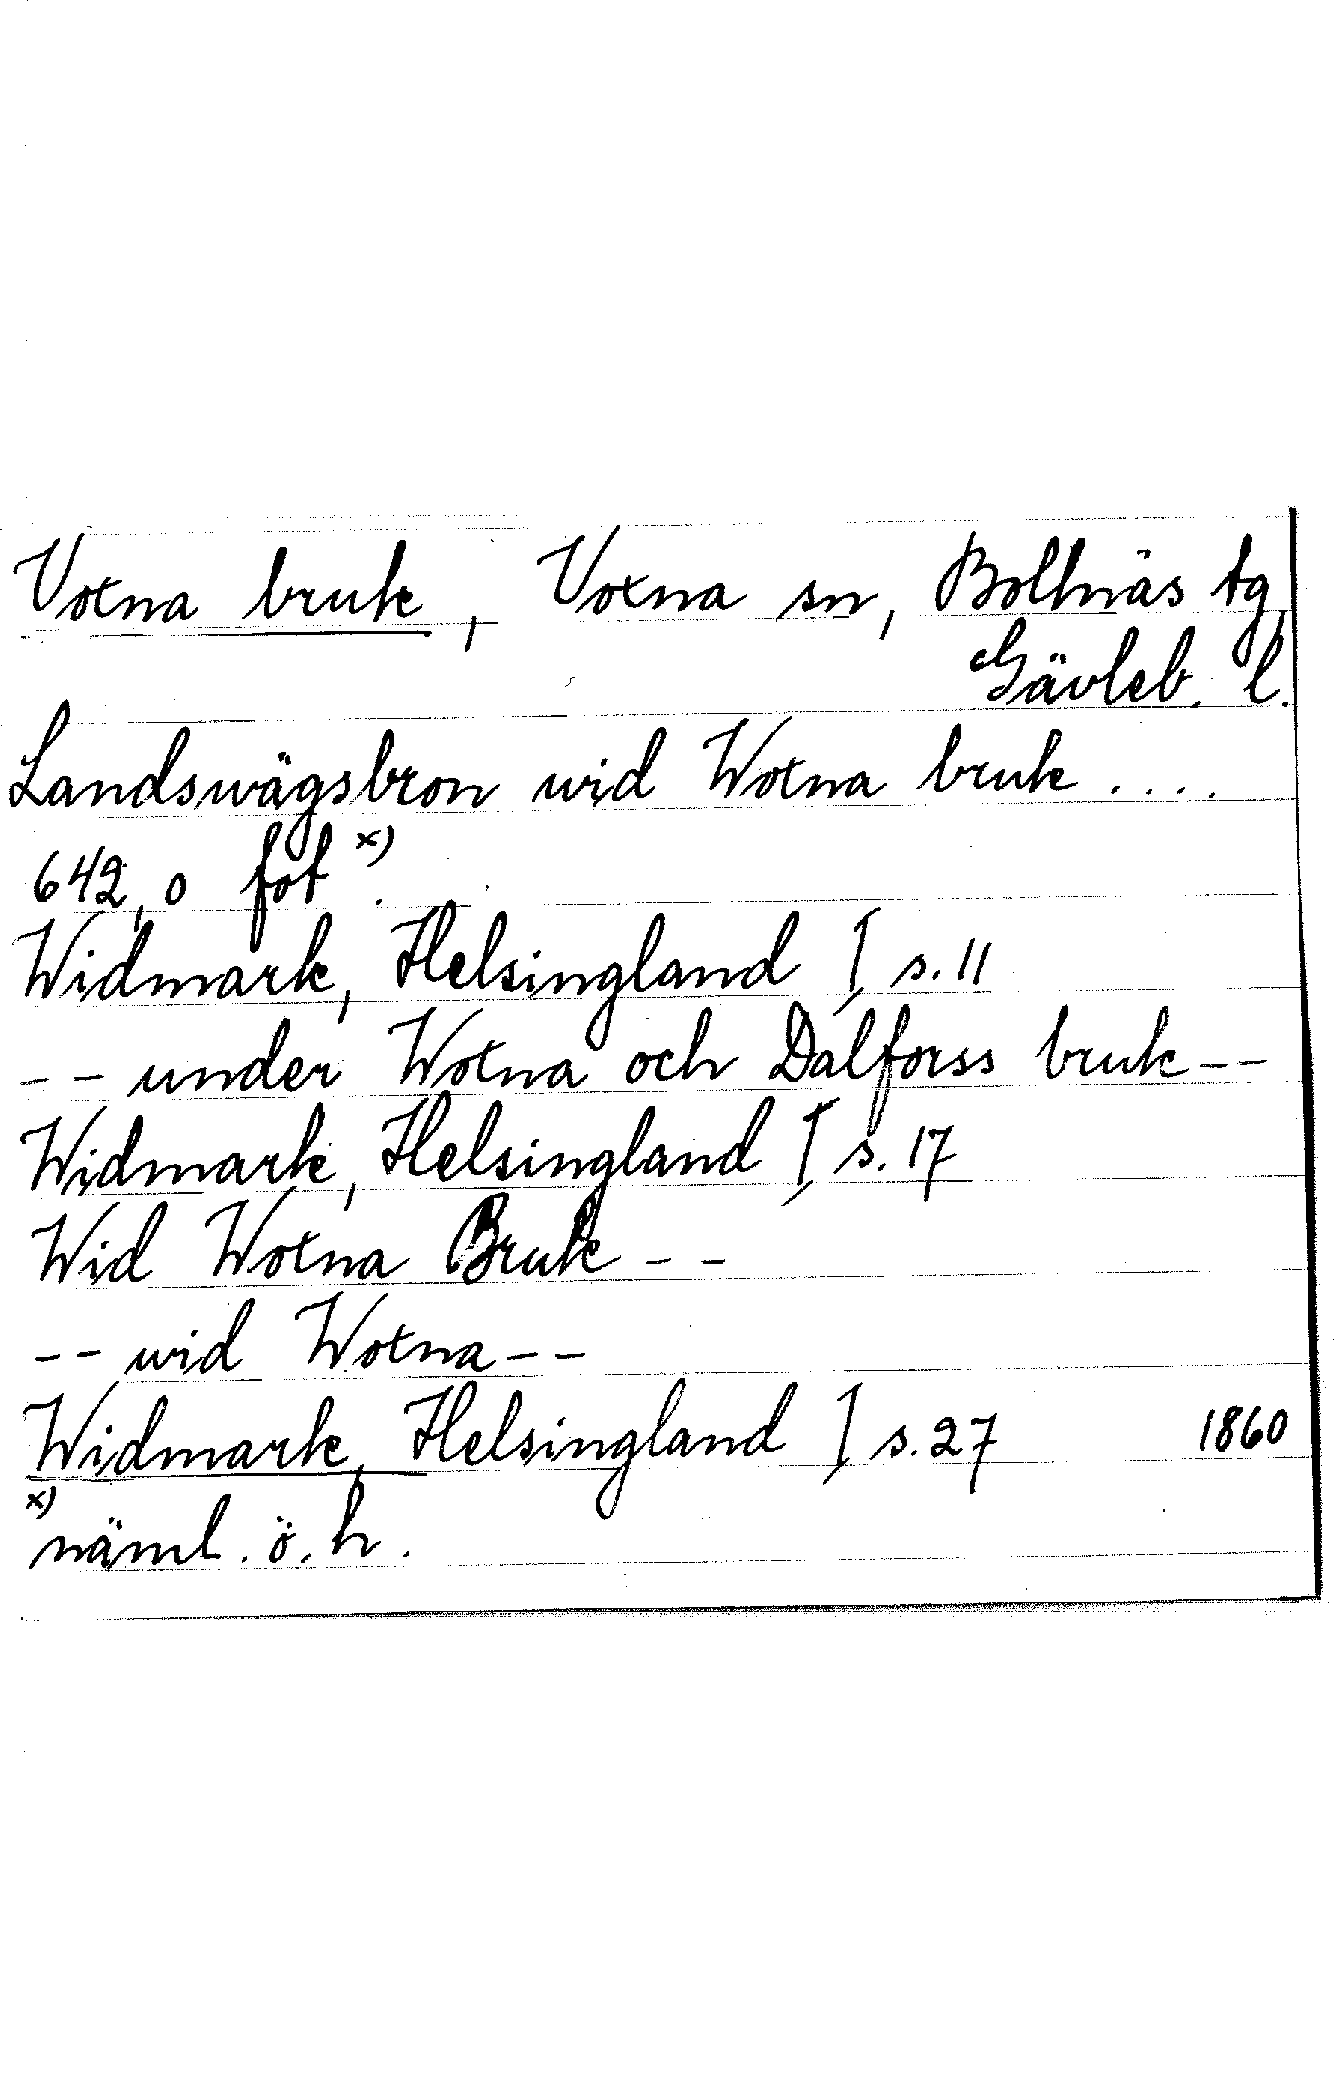 Voxna bruk, Voxna sn, Bollnäs tg,
Gävleb. l.
Landswägsbron wid Woxna bruk ....
642,0 fot x).
Widmark, Helsingland I, s. 11
-- under Woxna och Dalforss bruk --
Widmark, Helsingland I, s. 17
Wid Woxna Bruk --
-- wid Woxna --
Widmark, Helsingland I s. 27 1860
x) näml. ö. h.